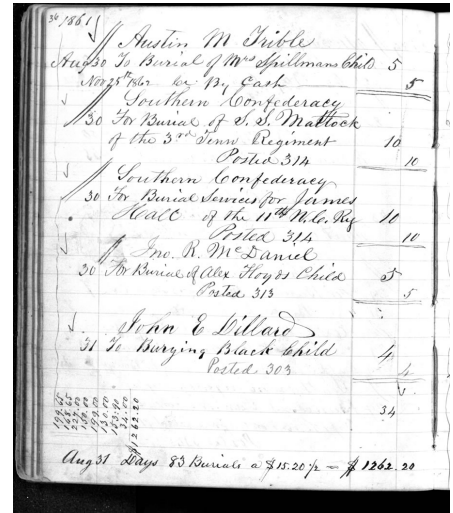 34
1861
Austin M Trible
Aug 30 To Burial of Mrs Spillmans Child 5
Nov 25th 1862 Cr By Cash 5
Southern Confederacy
30 For Burial of S. S. Mattock
of the 3rd Tenn Regiment 10
Posted 314 10
Southern Confederacy
30 For Burial Services for James
Hall of the 11th N.C. Reg 10
Posted 314 10
Jno. R. McDaniel
30 For Burial of Alex Floyds Child 5
Posted 313 5
John E Dillard
31 To Burying Black Child 4
Posted 303 4
34
199.65
165.65
227.00
150.00
199.00
130.00
153.90
34.00
$1262.20
Aug 31 Days 83 Burials a $15.20½ = $1262.20